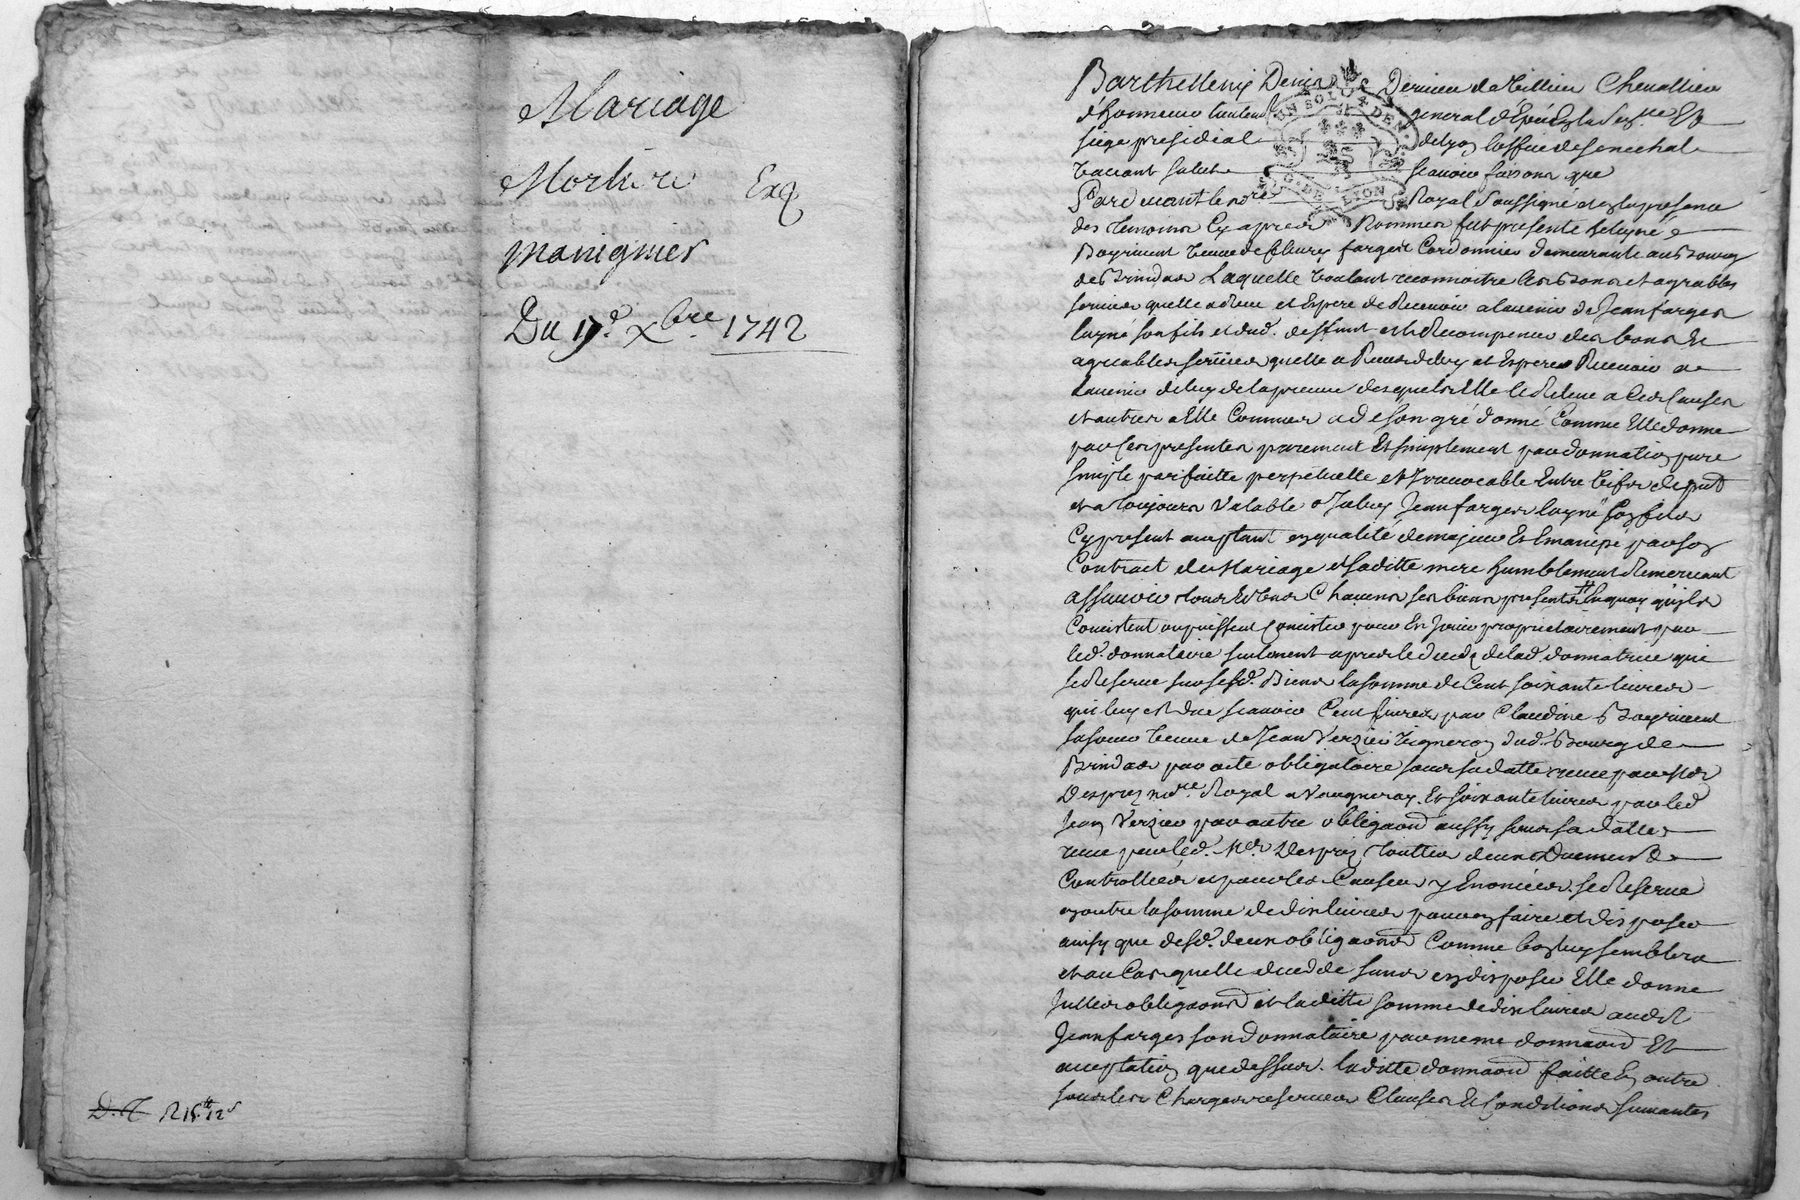 Mariage
Morliere Exp
manignier
Du 17d. Xbre. 1742
D.T R 15tt 12s
UN SOL LX DEN.
G. DE LYON
Barthellemy Denis Dervieu de Villieu Chevallier
d'honneur lieutenant general d'Epée en la Senechaussée Et
siege presidial de Lyon l'office de Senechal
vaccant Salut scavoir faisons que
Pardevant le nore Royal Soussigné et en la presence
des temoins Cy apres Nommes fut presente heleyne
Bayricent veuve de fleury farges Cordonnier demeurante au Bourg
de Brindas Laquelle voulant reconnoitre les Bons et agreables
services quelle a Receu et Espere de Recevoir a lavenir de Jean farges
layné son fils et dud. deffunt et la Recompence des bons Et
agreables services quelle a Receus de luy et Espere Recevoir a
Lavenir de luy de la preuve desquels Elle le Releve a Ces Causes
et autres a Elle Connues a de son gré donné Comme Elle donne
par Ces presentes purement Et simplement par donnation pure
simple parfaitte perpetuelle et Irrevocable Entre vifs des put
et a toujours valable a Iceluy Jean farges layné son fils
Cy present acceptant en qualité de majeur Et Emancipé par son
Contract de Mariage et saditte mere humblement Remerciant
assavoir tous Et uns Chacuns ses biens presents En quoy qu'ils
Concistent ou puissent Concister pour En Jouir proprietairement par
led. donnataire seulement apres le deceds de lad. donnatrice qui
se Reserve sur sesd. Biens la somme de Cent soixante livres
qui luy est due scavoir Cent livres par Claudine Bayricent
sa soeur veuve de Jean Verzieu vigneron dud. Bourg de
Brindas par acte obligatoire sous sa datte receue par Mer
Desprez nore. Royal a Vaugneray Et soixante livres par led
Jean Verzieu par autre obligaond aussy sous sa datte
receue par led. Mer Desprez touttes deux Duement
Controllées et pour les Causes y Enoncées. se Reserve
en outre la somme de dix livres pour en faire et disposer
ainsy que desd. deux obligaond Comme bon luy semblera
et au Cas quelle decede sans en disposer Elle donne
Icelles obligaond et laditte somme de dix livres audit
Jean farges son donnataire par meme donnaond Et
acceptation que dessus. laditte donnaond faitte En outre
sous les Charges reserves Clauses Et Conditions suivantes